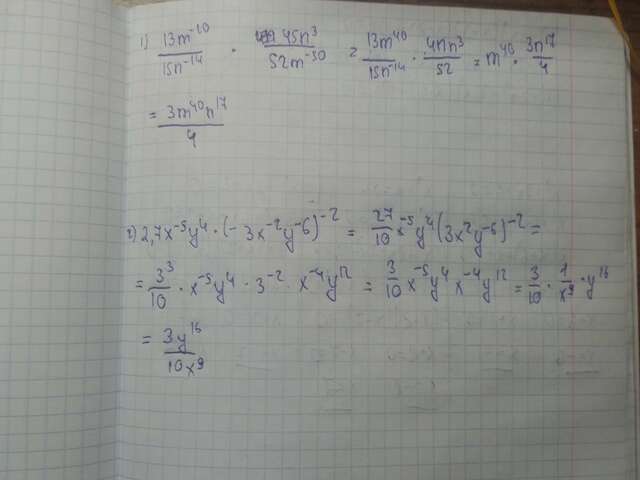 1) 13m⁻¹⁰/15n⁻¹⁴ · 45n³/52m⁻⁵⁰ = 13m⁴⁰/15n⁻¹⁴ · 45n³/52 = m⁴⁰ · 3n¹⁷/4
= 3m⁴⁰n¹⁷/4
2) 2,7x⁻⁵y⁴ · (-3x⁻²y⁻⁶)⁻² = 27/10 x⁻⁵y⁴(3x²y⁻⁶)⁻² =
= 3³/10 · x⁻⁵y⁴ · 3⁻² · x⁻⁴y¹² = 3/10 x⁻⁵y⁴x⁻⁴y¹² = 3/10 · 1/x⁹ · y¹⁶
= 3y¹⁶/10x⁹